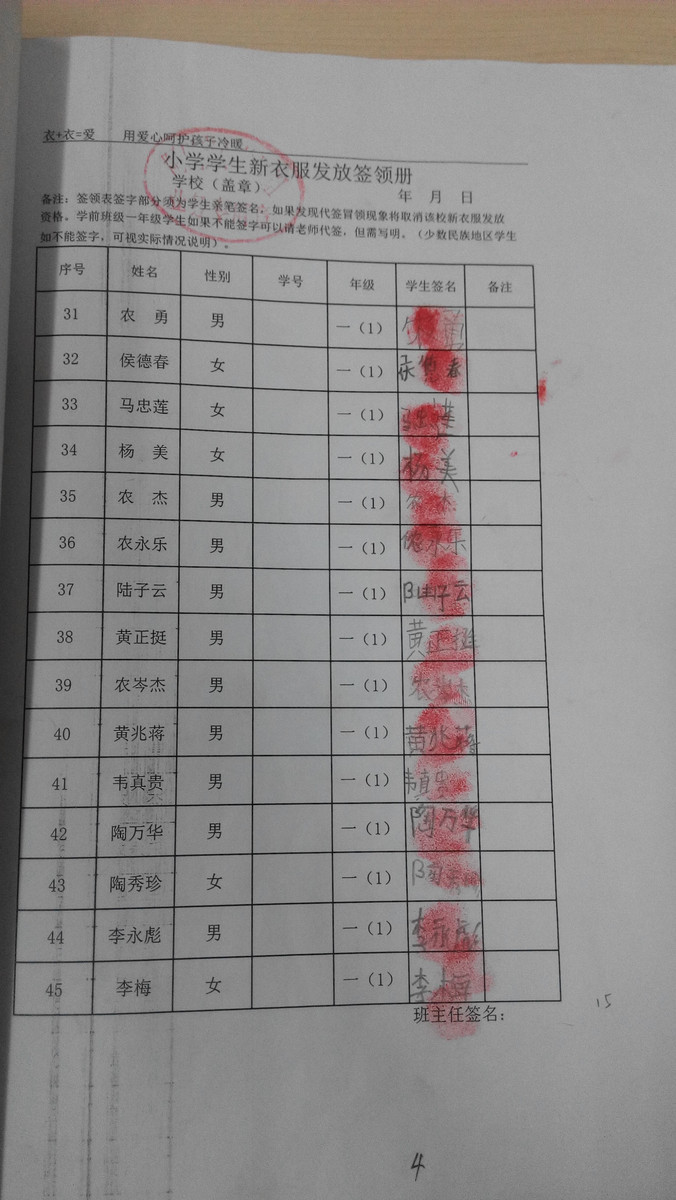 衣+衣=爱 用爱心呵护孩子冷暖
小学学生新衣服发放签领册
学校（盖章）
年 月 日
备注：签领表签字部分须为学生亲笔签名，如果发现代签冒领现象将取消该校新衣服发放
资格。学前班级一年级学生如果不能签字可以请老师代签，但需写明。（少数民族地区学生
如不能签字，可视实际情况说明）。
序号 姓名 性别 学号 年级 学生签名 备注
31 农 勇 男 一（1） 农勇
32 侯德春 女 一（1） 侯德春
33 马忠莲 女 一（1） 马忠莲
34 杨 美 女 一（1） 杨美
35 农 杰 男 一（1） 农杰
36 农永乐 男 一（1） 农永乐
37 陆子云 男 一（1） 陆子云
38 黄正挺 男 一（1） 黄正挺
39 农岑杰 男 一（1） 农岑杰
40 黄兆蒋 男 一（1） 黄兆蒋
41 韦真贵 男 一（1） 韦真贵
42 陶万华 男 一（1） 陶万华
43 陶秀珍 女 一（1） 陶秀珍
44 李永彪 男 一（1） 李永彪
45 李梅 女 一（1） 李梅
班主任签名：
15
4